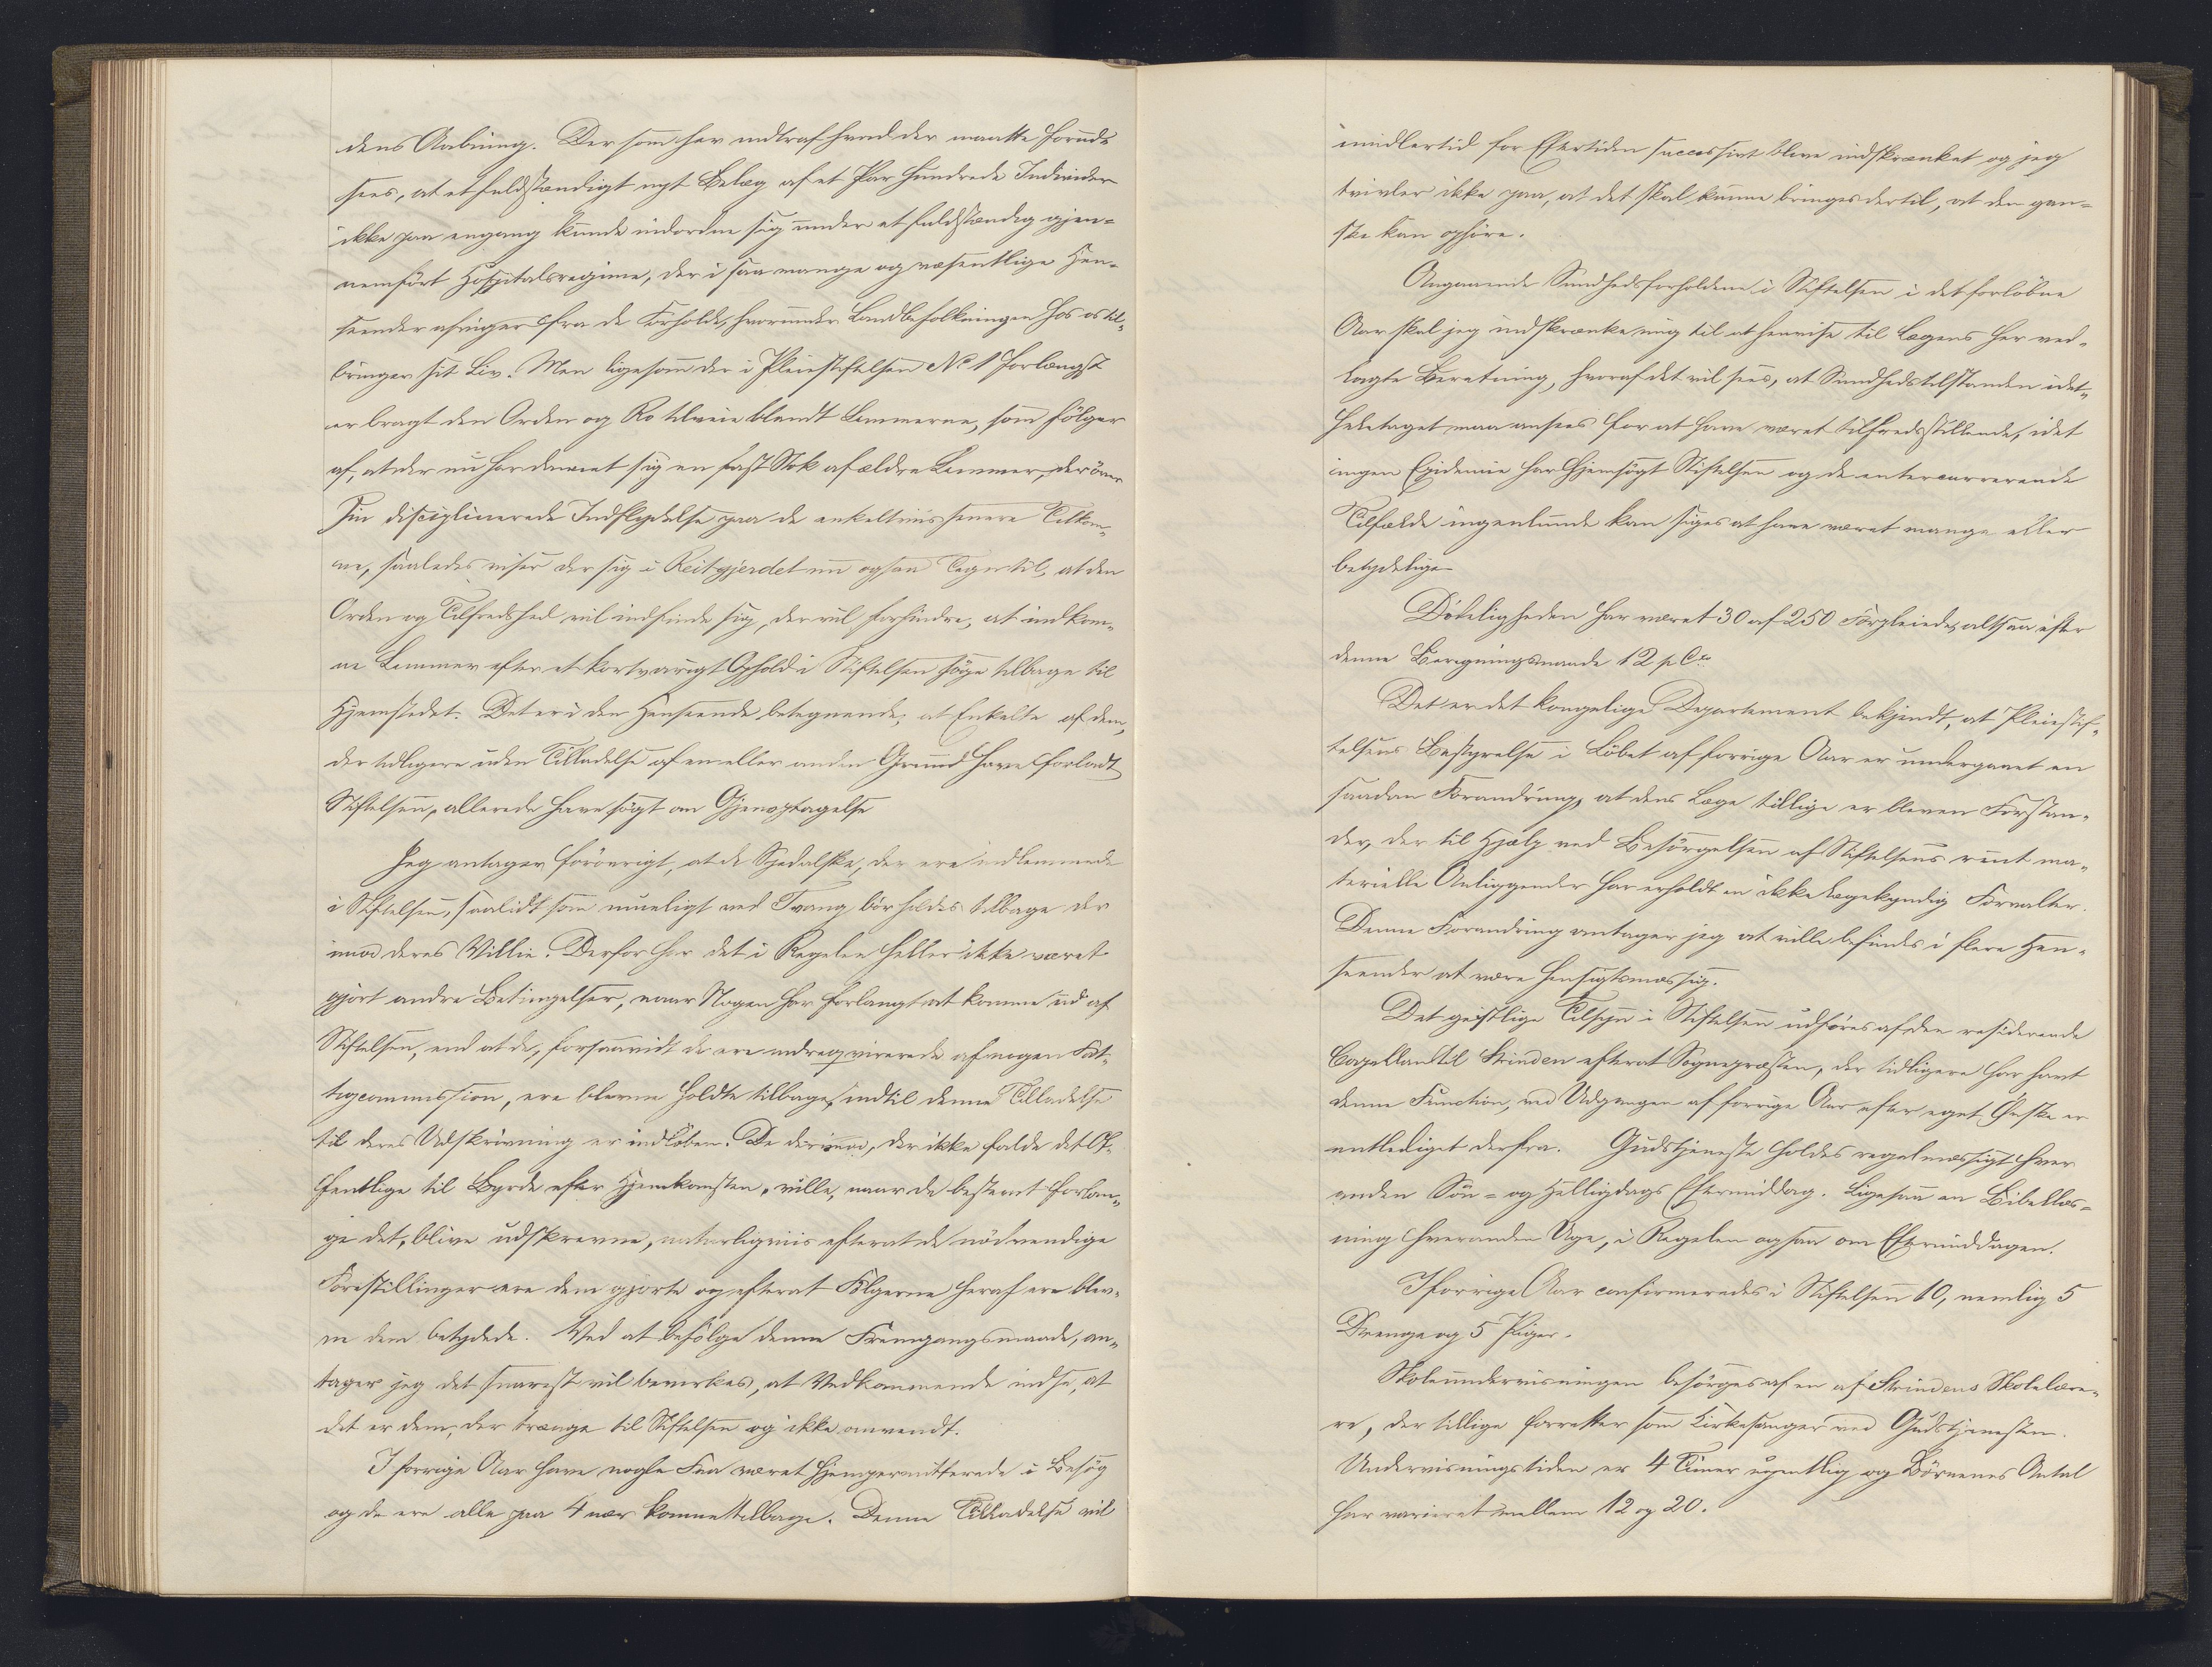 dens Aabning. Der som her indtraf hvad der maatte forud-
sees, at et fuldstændigt nyt Belæg af et Par Hundrede Individer
ikke paa engang kunde indordne sig under et fuldstændig gjen-
nemført Hospitalsregime, der i saa mange og væsentlige Hen-
seender afviger fra de Forholde, hvorunder Landbefolkningen hos os til-
bringer sit Liv. Men ligesom der i Pleiestiftelsen No 1 forlængst
er bragt den Orden og Ro tilveie blandt Lemmerne, som følger
af, at der nu har dannet sig en fast Stok af ældre Lemmer, der øver
sin disciplinerede Indflydelse paa de enkeltviis senere Tilkom-
ne, saaledes viser der sig i Reitgjerdet nu ogsaa Tegn til, at den
Orden og Tilfredshed vil indfinde sig, der vil forhindre, at indkom-
ne Lemmer efter et kortvarigt Ophold i Stiftelsen søge tilbage til
Hjemstedet. Det er i den Henseende betegnende, at Enkelte af dem,
der tidligere uden Tilladelse af en eller anden Grund have forladt
Stiftelsen, allerede have søgt om Gjenoptagelse
Jeg antager forøvrigt, at de Spedalske, der ere indlemmede
i Stiftelsen, saalidt som mueligt ved Tvang bør holdes tilbage der
imod deres Villie. Derfor har det i Regelen heller ikke været
gjort andre Betingelser, naar Nogen har forlangt at komme ud af
Stiftelsen, end at de, forsaavidt de ere indreqvirerede af nogen Fat-
tigcommission, ere blevne holdte tilbage, indtil denne Tilladelse
til deres Udskrivning er indløben. De derimod, der ikke falde det Of-
fentlige til Byrde efter Hjemkomsten, ville, naar de bestemt forlan-
ge det, blive udskrevne, naturligviis efterat de nødvendige
Forestillinger ere dem gjorte og efterat Følgerne heraf ere blev-
ne dem betydede. Ved at befølge denne Fremgangsmaade, an-
tager jeg det snarest vil bevirkes, at Vedkommende indse, at
det er dem, der trænge til Stiftelsen og ikke omvendt.
I forrige Aar have nogle Faa været hjempermitterede i Besøg
og de ere alle paa 4 nær komne tilbage. Denne Tilladelse vil
imidlertid for Eftertiden successivt blive indskrænket og jeg
tvivler ikke paa, at det skal kunne bringes dertil, at den gan-
ske kan ophøre.
Angaaende Sundhedsforholdene i Stiftelsen i det forløbne
Aar skal jeg indskrænke mig til at henvise til Lægens her ved-
lagte Beretning, hvoraf det vil sees, at Sundhedstilstanden idet-
heletaget maa ansees for at have været tilfredsstillende, idet
ingen Epidemie har hjemsøgt Stiftelsen og de intercurrerende
Tilfælde ingenlunde kan siges at have været mange eller
betydelige
Dødeligheden har været 30 af 250 Forpleiede, altsaa efter
denne Beregningsmaade 12 p Ct
Det er det kongelige Departement bekjendt, at Pleiestif-
telsens Bestyrelse i Løbet af forrige Aar er undergaaet en
saadan Forandring, at dens Læge tillige er bleven Forstan-
der, der til Hjælp ved Besørgelsen af Stiftelsens reent ma-
terielle Anliggender har erholdt en ikke lægekyndig Forvalter.
Denne Forandring antager jeg at ville befindes i flere Hen-
seender at være hensigtsmæssig.
Det geistlige Tilsyn i Stiftelsen udføres af den residerende
Capellan til Strinden efterat Sognepræsten, der tidligere har havt
denne Function, ved Udgangen af forrige Aar efter eget Ønske er
entlediget derfra. Gudstjeneste holdes regelmæssigt hver
anden Søn- og Helligdags Eftermiddag. Ligesaa en Bibellæs-
ning hveranden Uge, i Regelen ogsaa om Eftermiddagen.
I forrige Aar confirmeredes i Stiftelsen 10, nemlig 5
Drenge og 5 Piger.
Skoleundervisningen besørges af en af Strindens Skolelære-
re, der tillige forretter som Kirkesanger ved Gudstjenesten.
Undervisningstiden er 4 Timer ugentlig og Børnenes Antal
har varieret mellem 12 og 20.